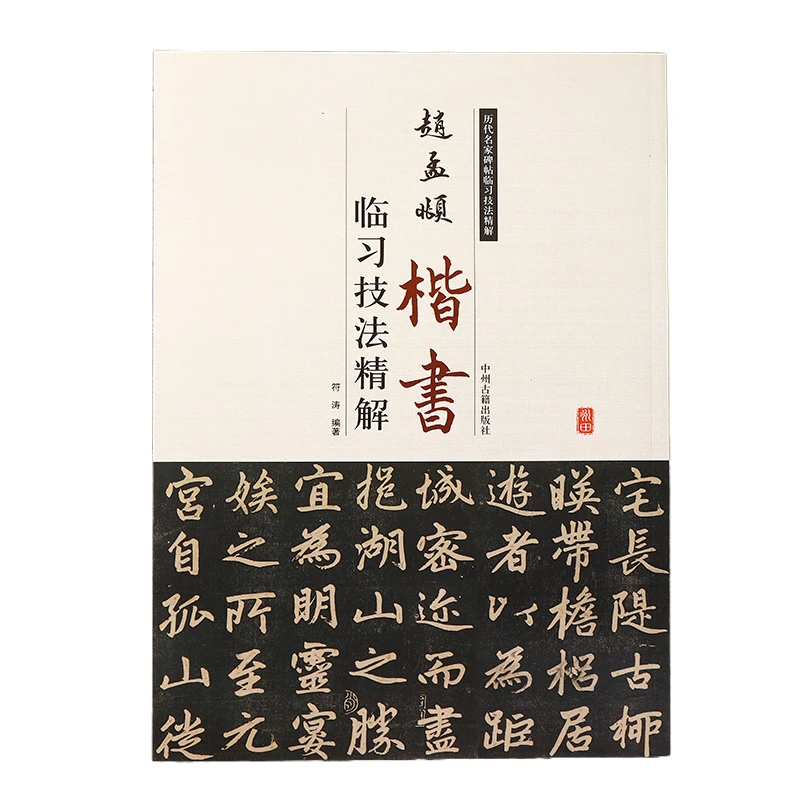 历代名家碑帖临习技法精解
中州古籍出版社
趙孟頫
楷書
临习技法精解
符涛 编著
宅長隄古柳
暎帶檐梠居
遊者以為距
城密迩而盡
挹湖山之勝
宜為明靈宴
娭之所至元
宮自孤山徙